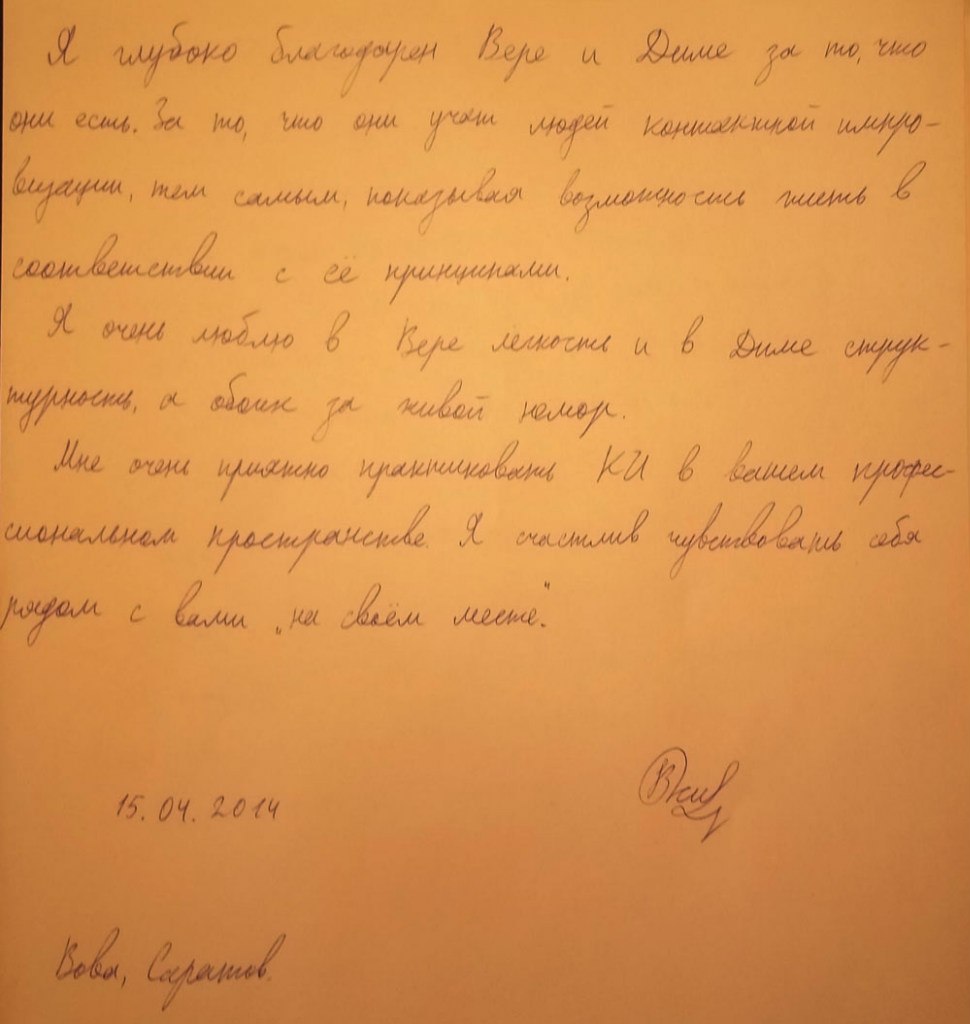 Я глубоко благодарен Вере и Диме за то, что
они есть. За то, что они учат людей контактной импро-
визации, тем самым, показывая возможность жить в
соответствии с её принципами.
Я очень люблю в Вере лёгкость и в Диме струк-
турность, а обоих за живой юмор.
Мне очень приятно практиковать КИ в вашем профес-
сиональном пространстве. Я счастлив чувствовать себя
рядом с вами „на своём месте".
15.04.2014
Вова, Саратов.